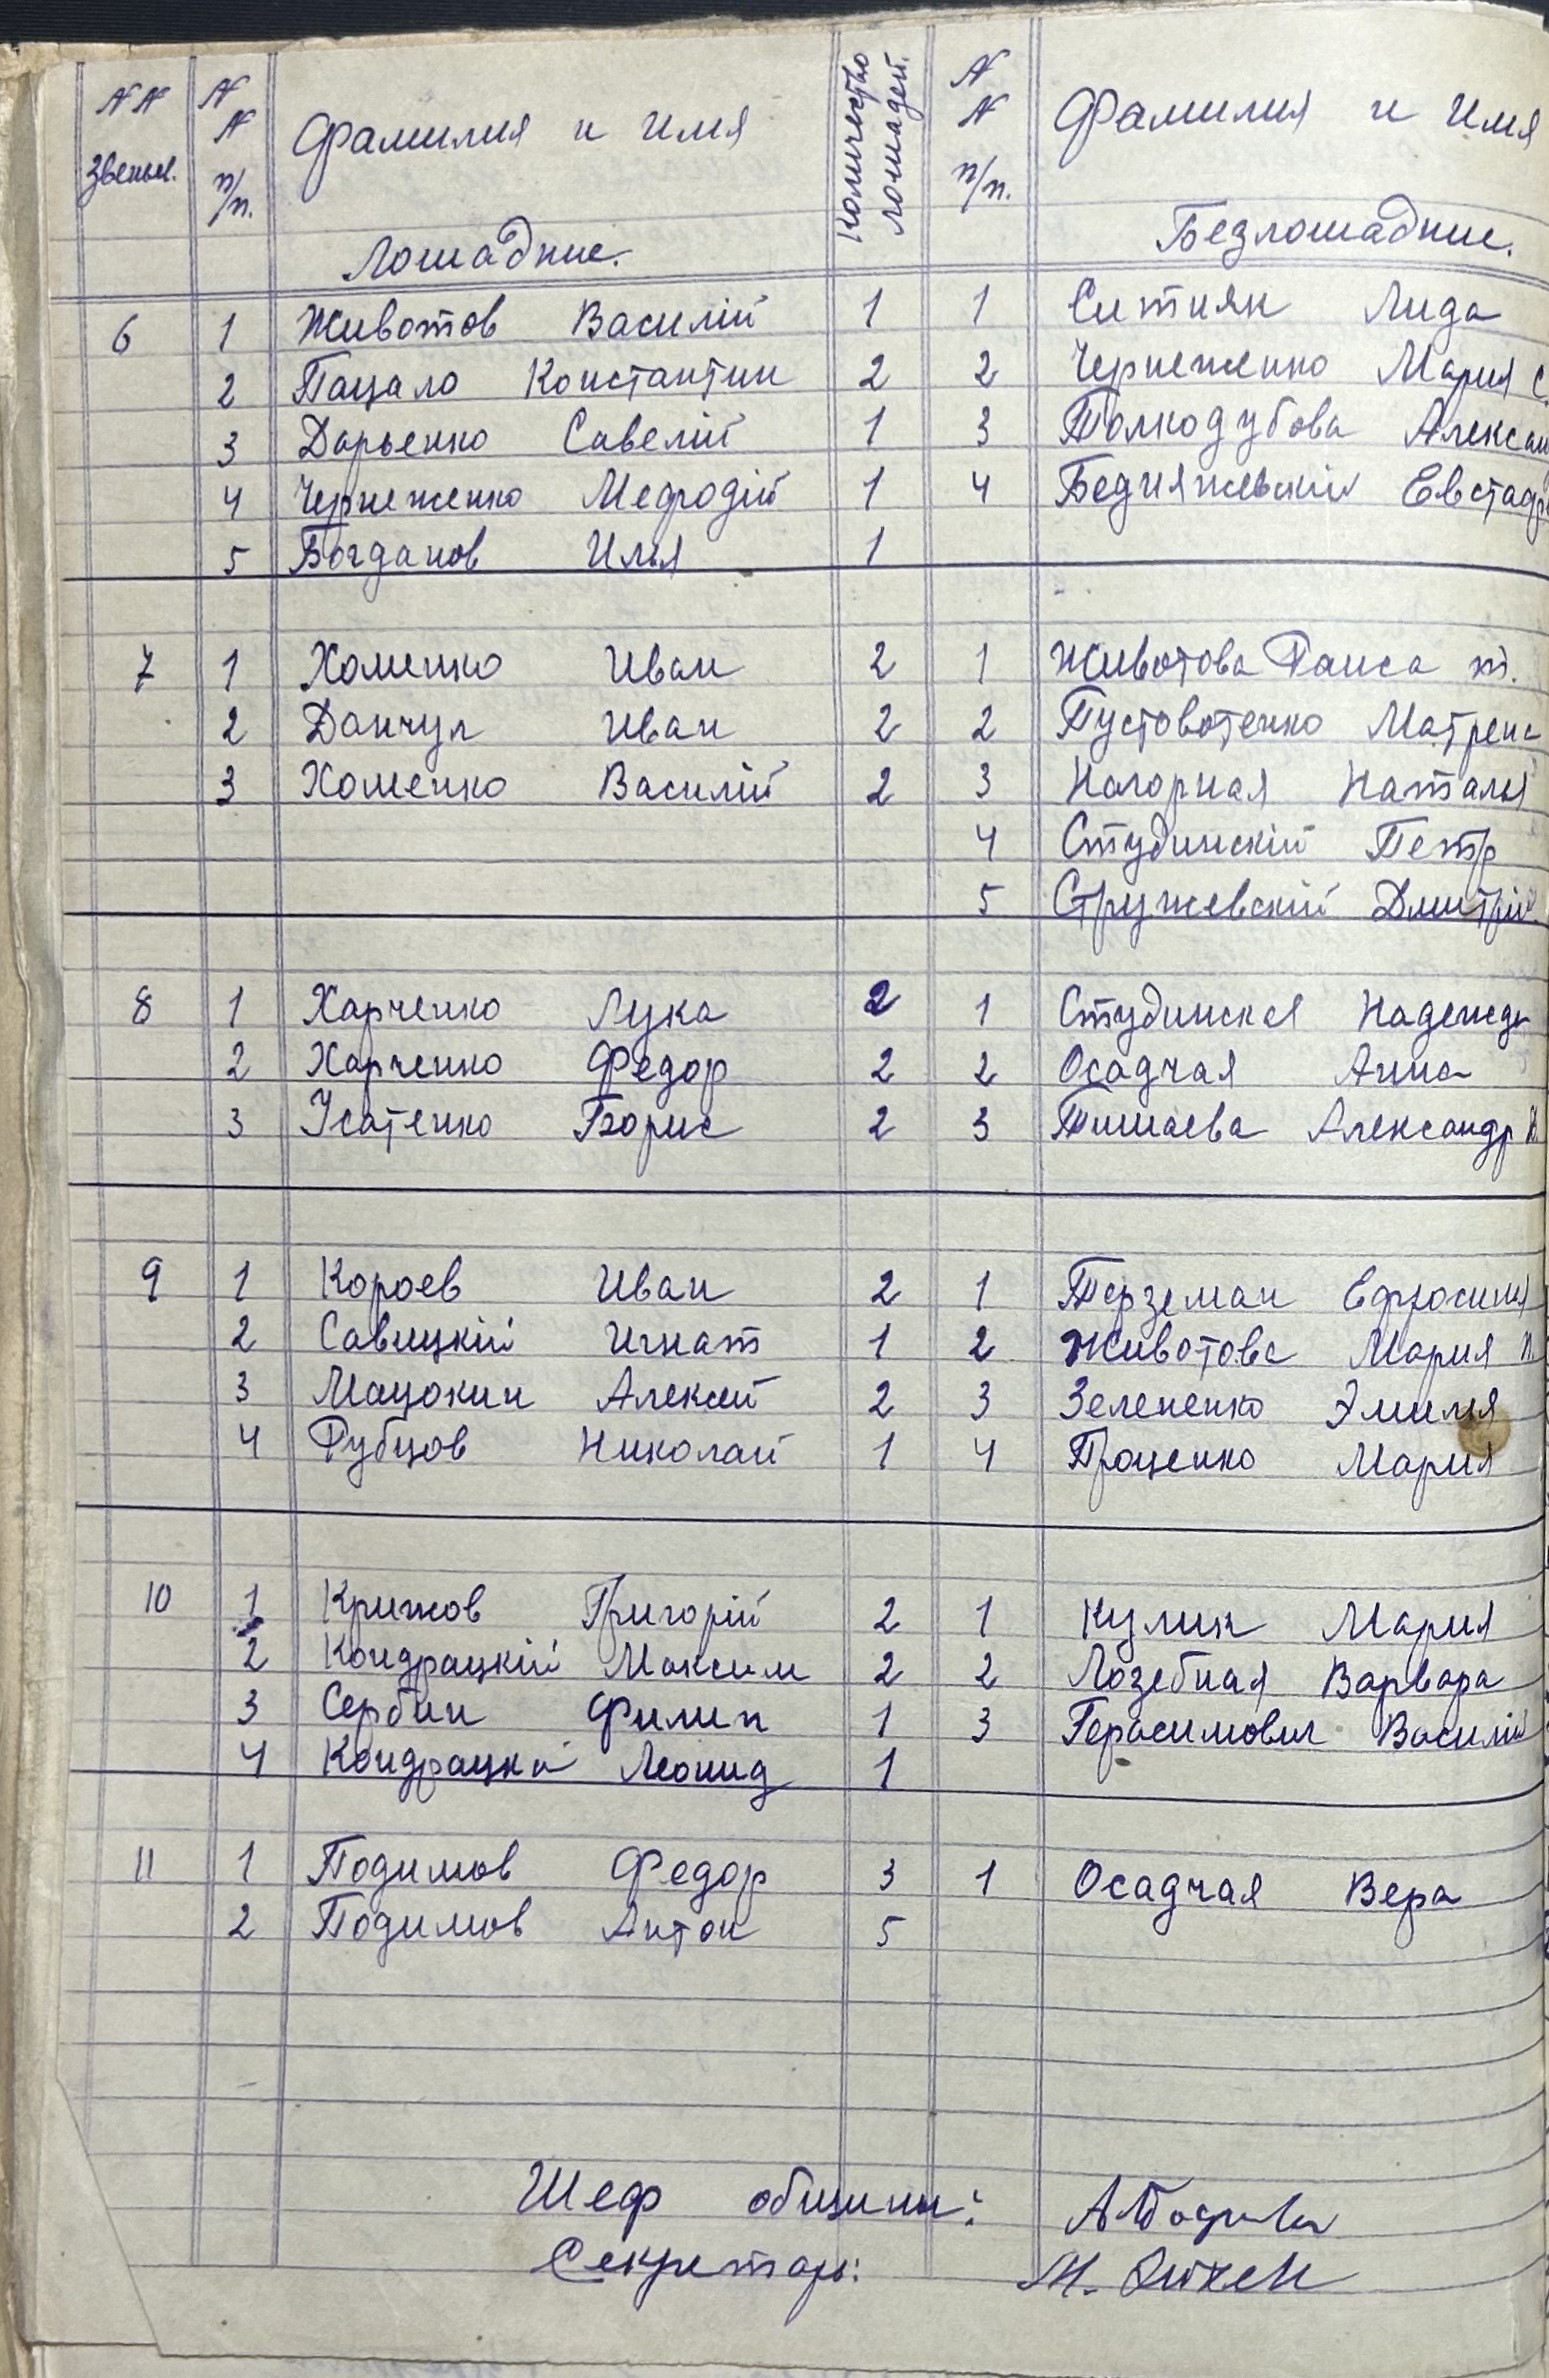 №№ звеньев. №№ п/п. Фамилия и имя Количество лошадей. №№ п/п. Фамилия и имя
Лошадние. Безлошадние.
6 1 Животов Василій 1 1 Ситняк Лида
2 Пацало Константин 2 2 Чернеженко Мария С.
3 Дарьенко Савелій 1 3 Толкодубова Алексан
4 Чернеженко Мефодій 1 4 Бедняжевскій Евстаф
5 Богданов Илья 1
7 1 Хоменко Иван 2 1 Животова Раиса т.
2 Данчул Иван 2 2 Пустовотенко Матрена
3 Хоменко Василій 2 3 Нагорная Наталья
4 Студинскій Петр
5 Стружевскій Дмитрій
8 1 Харченко Лука 2 1 Студинская Надежда
2 Харченко Федор 2 2 Осадчая Анна
3 Усатенко Борис 2 3 Тишаева Александр
9 1 Короев Иван 2 1 Терземан Ефросиния
2 Савицкій Игнат 1 2 Животова Мария
3 Мацокин Алексей 2 3 Зелененко Эмилия
4 Рубцов Николай 1 4 Проценко Мария
10 1 Крижов Григорій 2 1 Кулик Мария
2 Кондрацкій Максим 2 2 Лозебная Варвара
3 Сербин Филип 1 3 Герасимович Василій
4 Кондрацкй Леонид 1
11 1 Подимов Федор 3 1 Осадчая Вера
2 Подимов Антон 5
Шеф общини:
Секретарь: